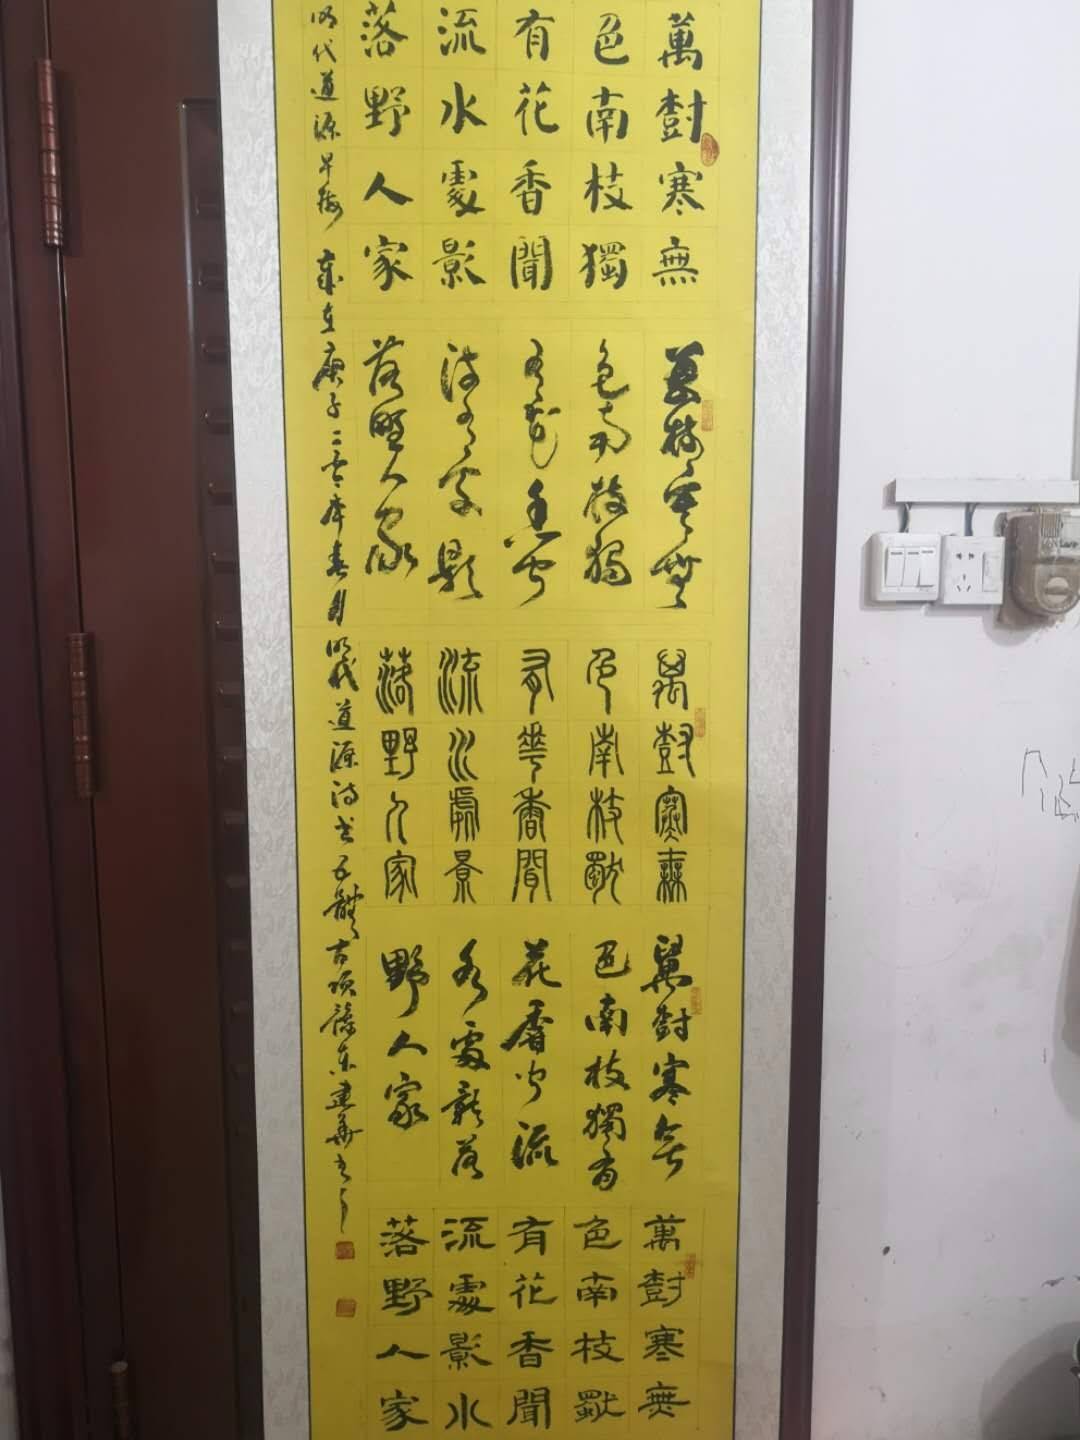 萬樹寒無
色南枝獨
有花香聞
流水處影
落野人家
萬樹寒無
色南枝獨
有花香聞
流水處影
落野人家
萬樹寒無
色南枝獨
有花香聞
流水處影
落野人家
萬樹寒無
色南枝獨有
花香聞流
水處影落
野人家
萬樹寒無
色南枝獨
有花香聞
流處影水
落野人家
明代道源早梅 歲在庚子二零年春月 明代道源詩書五體 古項 東建華書